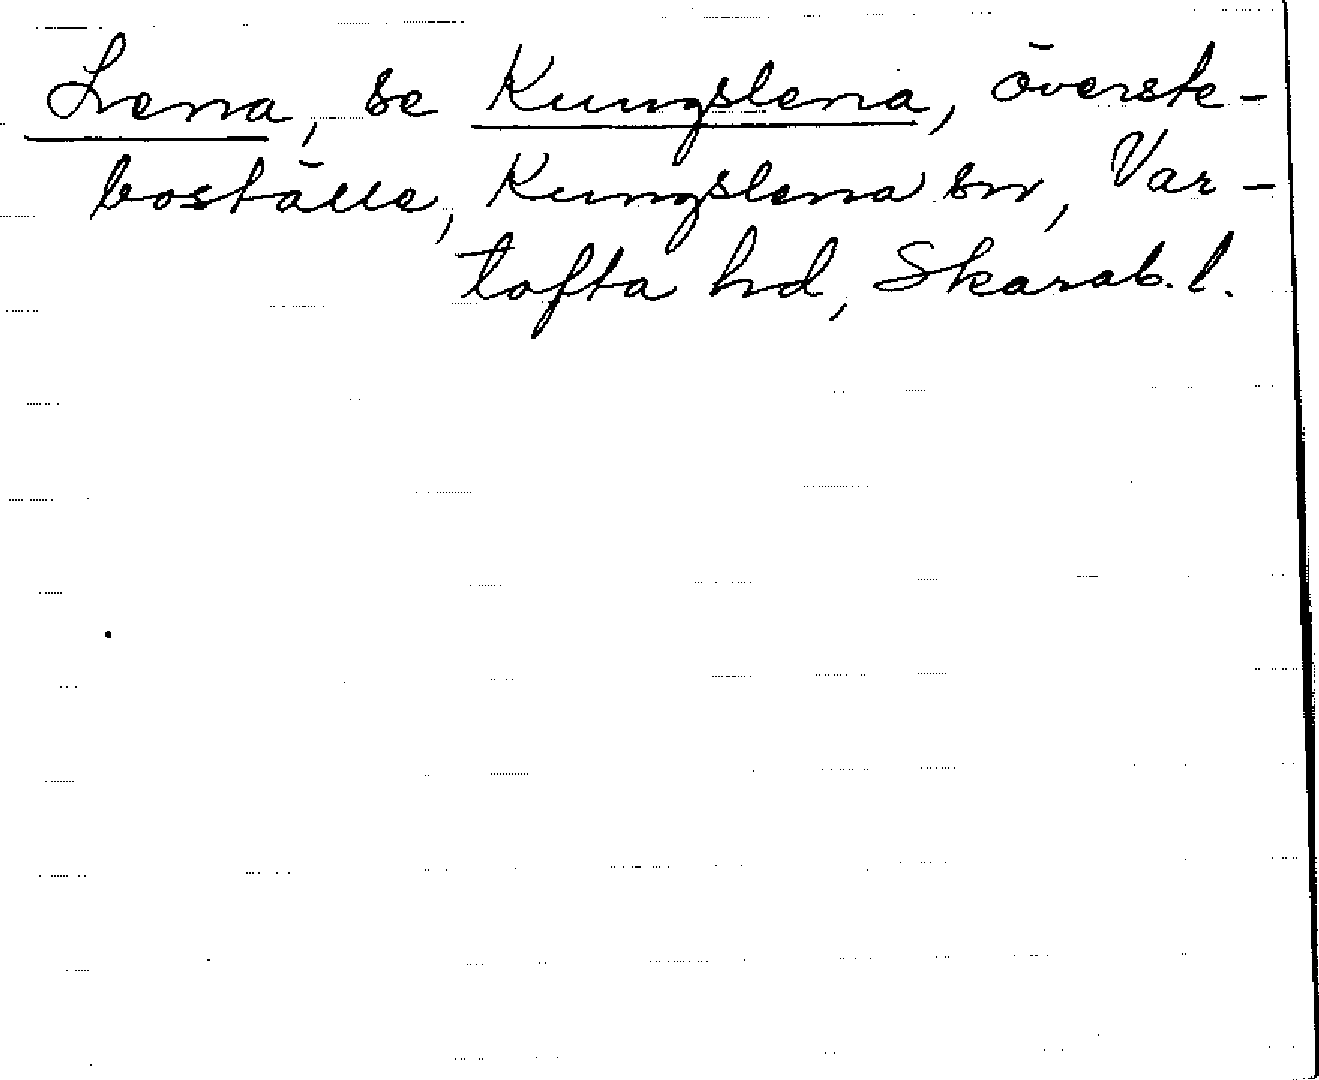 Lena, se Kungslena, överste-
boställe, Kungslena sn, Var-
tofta hd, Skarab. l.